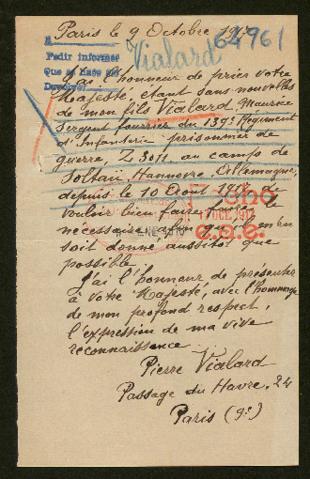 Paris le 9 Octobre 1917
Vialard
64961
A
Pedir informes
Que se hace así
Devolver
J'ai l'honneur de prier votre
Majesté, étant sans nouvelles
de mon fils Vialard, Maurice
Sergent fourrier du 139e Régiment
d'Infanterie prisonnier de
guerre, Z 3011, au camp de
Soltau, Hannovre, Allemagne,
depuis le 10 Août 1917 de
vouloir bien faire le
nécessaire afin qu'
soit donné, aussitôt que
possible.
OCT 1917
J'ai l'honneur de présenter
à Votre Majesté, avec l'hommage
de mon profond respect,
l'expression de ma vive
reconnaissance.
Pierre Vialard
Passage du Havre. 24
Paris (9e)